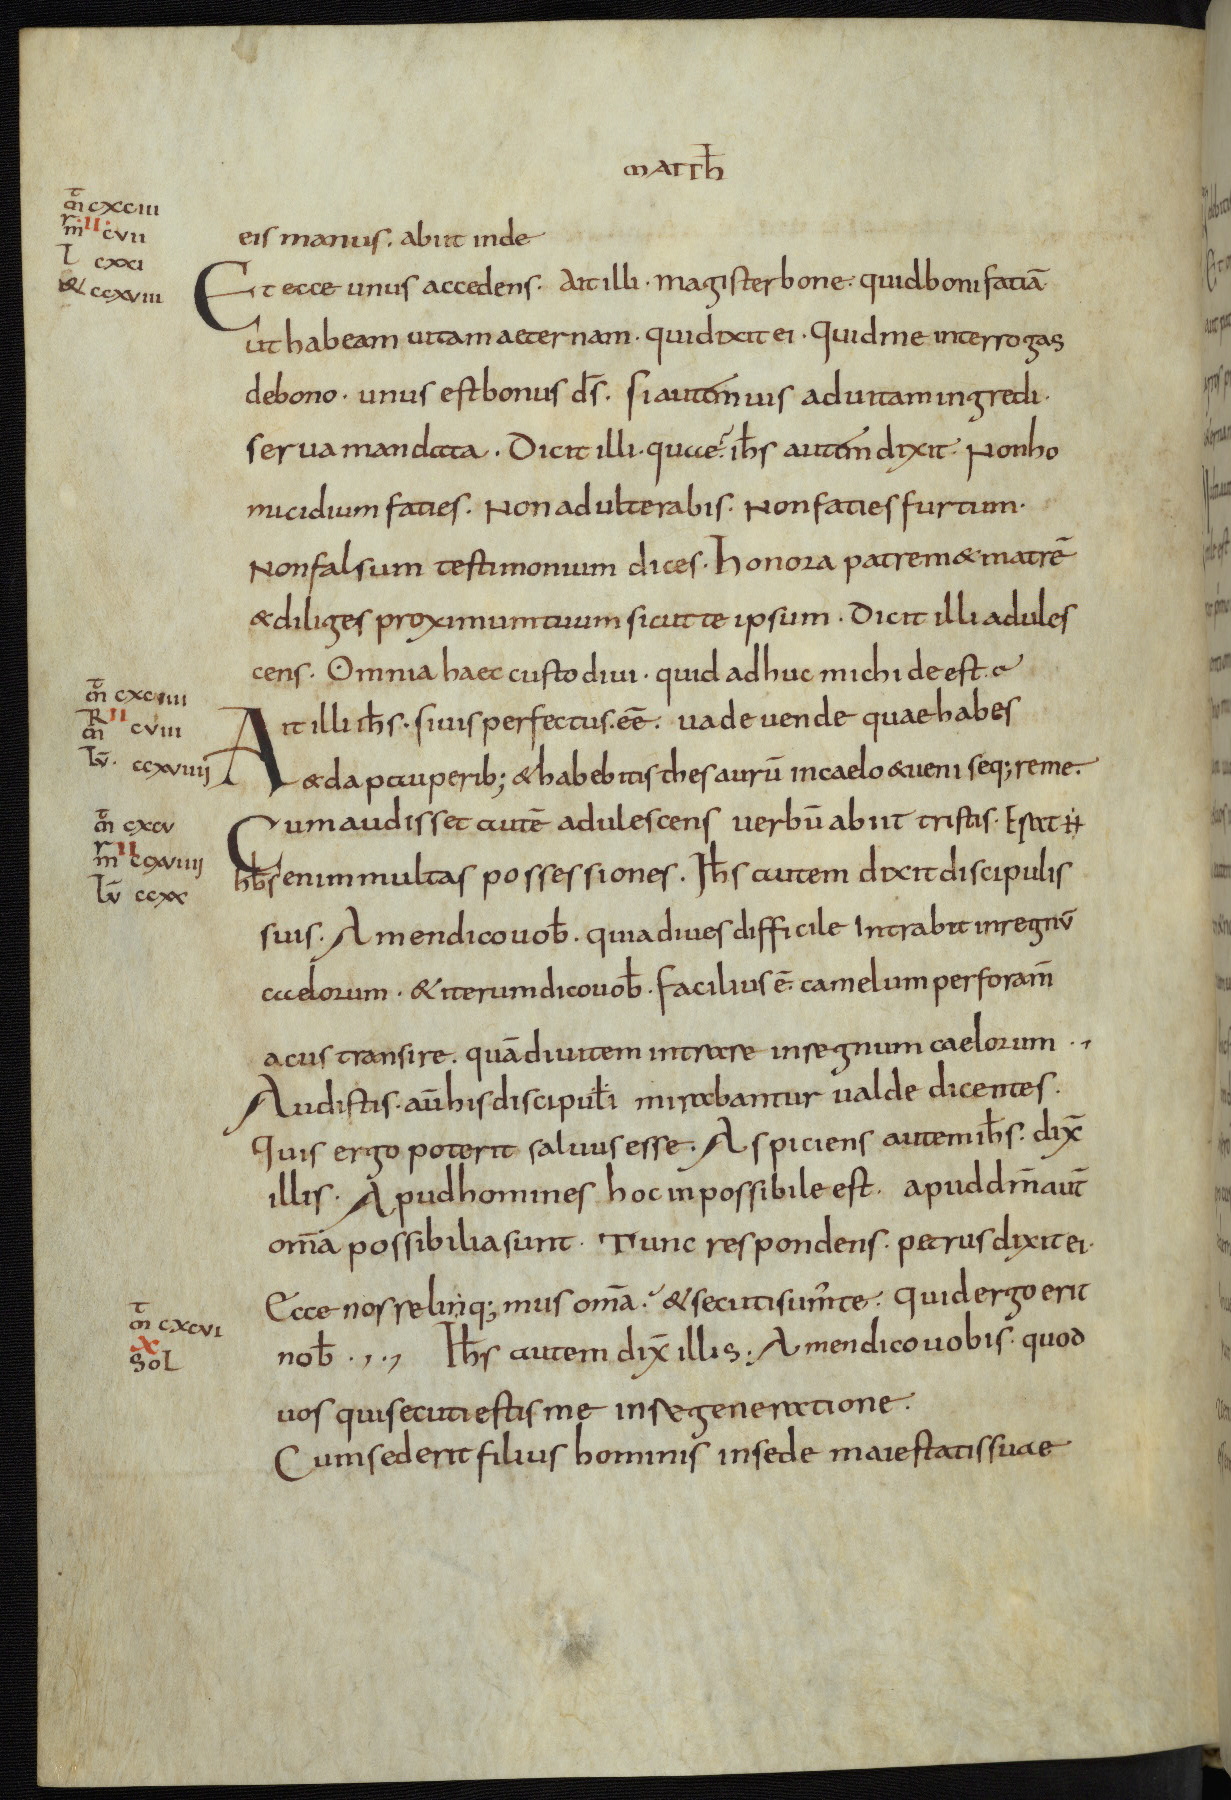 MATTH̄
eis manus. abiit inde
Et ecce unus accedens. Ait illi. magister bone. quid boni fatiā
ut habeam uitam aeternam. qui dixit ei. Quid me interrogas
de bono. unus est bonus d̄s. Si autem uis ad uitam ingredi.
serua mandata. Dicit illi. quae. ih̄s autem dixit. Non ho
micidium faties. Non adulterabis. Non faties furtum.
Non falsum testimonium dices. Honora patrem & matrē
& diliges proximum tuum sicut te ipsum. Dicit illi adules
cens. Omnia haec custodiui. quid adhuc michi deest.
mt̄ cxciiii
mr̄ II cviii
lū. ccxviiii
Ait illi ih̄s. si uis perfectus. eē. uade uende quae habes
& da pauperib; & habebitis thesaurū in caelo & ueni seq;re me.
mt̄ cxcv
mr̄ II cviiii
lū ccxx
Cum audisset autē adulescens uerbū abiit tristis. Erat
hb̄s enim multas possessiones. Ih̄s autem dixit discipulis
suis. Amen dico uob̄. quia diues difficile intrabit in regnū
caelorum. & iterum dico uob̄. facilius ē. camelum per foram̄
acus transire. quā diuitem intrare in regnum caelorum.,
Audistis. aū his discipuł̄i mirabantur ualde dicentes.
Quis ergo poterit saluus esse. Aspiciens autem ih̄s. dix̄
illis. Apud homines hoc inpossibile est. apud dm̄ aut̄
om̄a possibilia sunt. Tunc respondens. petrus dixit ei.
Ecce nos relinq;mus om̄a. & secuti sum̄ te. quid ergo erit
mt̄ cxcvi
X
Sol
nob̄.,., Ih̄s autem dix̄ illis. Amen dico uobis. quod
uos qui secuti estis me in regeneratione.
Cum sederit filius hominis in sede maiestatis suae